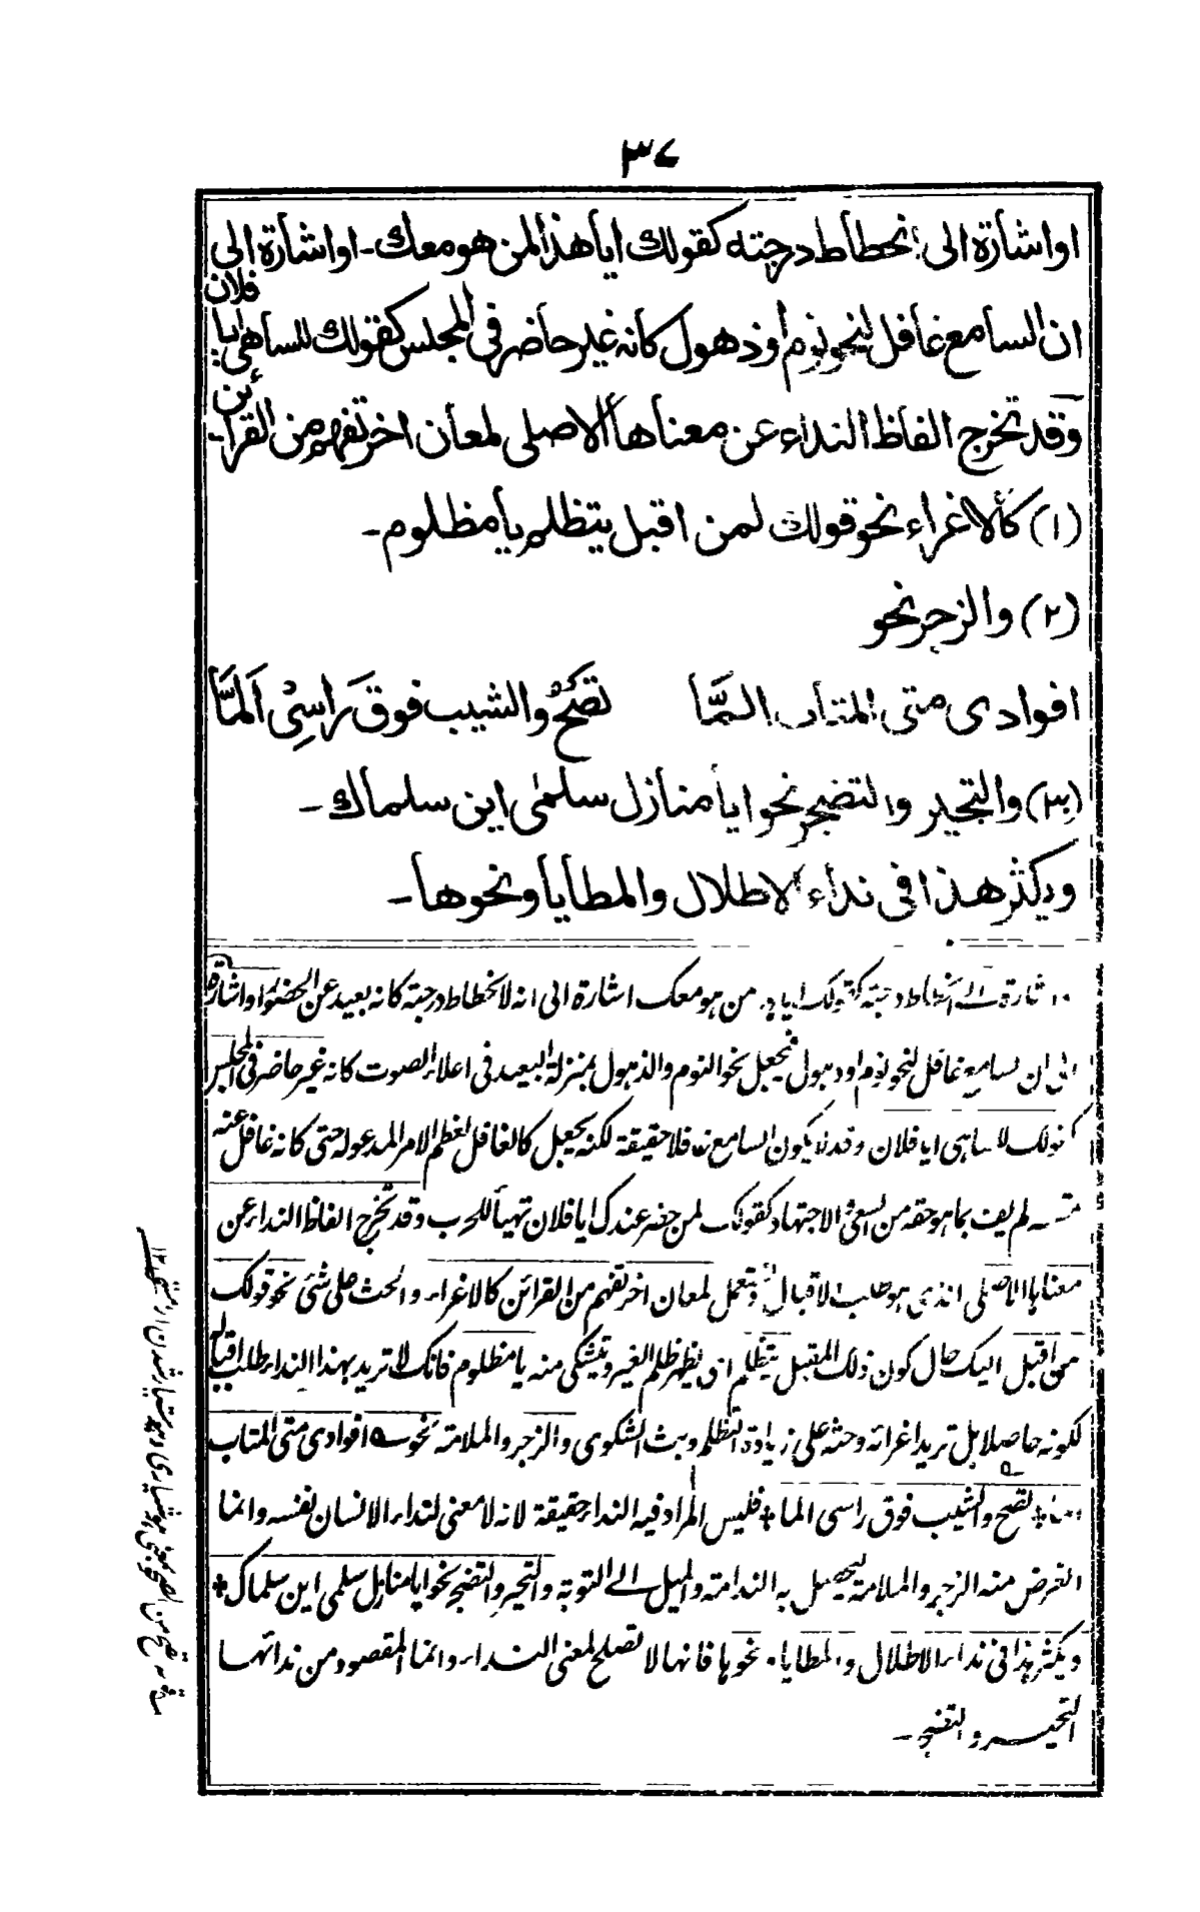 ٣٧
او اشارة الى انحطاط درجته كقولك ايا هذا لمن هو معك ـ او اشارة الى
ان السامع غافل لنحو نوم او ذهول كانه غير حاضر فى المجلس كقولك للساهى ايا فلان
وقد تخرج الفاظ النداء عن معناها الاصلى لمعان اخر تفهم من القرائن
(١) كالاغراء نحو قولك لمن اقبل يتظلم يا مظلوم ـ
(٢) والزجر نحو
افوادى متى المتاب المَّا تصح والشيب فوق رَاسِىْ اَلَمَّا
(٣) والتحير والتضجر نحو ايا منازل سلمىٰ اين سلماك ـ
ويكثر هذا فى نداء الاطلال والمطايا ونحوها ـ
من هو معك اشارة الى انه لانحطاط درجته كانه بعيد عن الحضور او اشارة
الى ان السامع غافل لنحو نوم او ذهول فيجعل نحو النوم والذهول بمنزلة البعيد فى اعلاء الصوت كانه غير حاضر فى المجلس
كقولك للساهى ايا فلان وقد لا يكون السامع غافلا حقيقة لكنه يجعل كالغافل لعظم الامر المدعو له حتى كانه غافل عنه
لم يف بما هو حقه من السعى والاجتهاد كقولك لمن حضر عندك ايا فلان تهيأ للحرب وقد تخرج الفاظ النداء عن
معناها الاصلى الذى هو طلب الاقبال وتستعمل لمعان اخر تفهم من القرائن كالاغراء والحث على شئ نحو قولك
لمن اقبل اليك حال كون ذلك المقبل يتظلم اى يظهر ظلم الغير ويتشكى منه يا مظلوم فانك لا تريد بهذا النداء طلب اقباله
لكونه حاصلا بل تريد اغرائه وحثه على زيادة التظلم وبث الشكوى والزجر والملامة نحو ؎ افوادى متى المتاب
المّا٭ تصح والشيب فوق راسى الما٭ فليس المراد فيه النداء حقيقة لانه لا معنى لنداء الانسان نفسه وانما
الغرض منه الزجر والملامة ليحصل به الندامة والميل الى التوبة والتحير والتضجر نحو ايا منازل سلمى اين سلماك٭
ويكثر هذا فى نداء الاطلال والمطايا ونحوها فانها لا تصلح لمعنى النداء وانما المقصود من ندائها
التحير والتضجر ـ